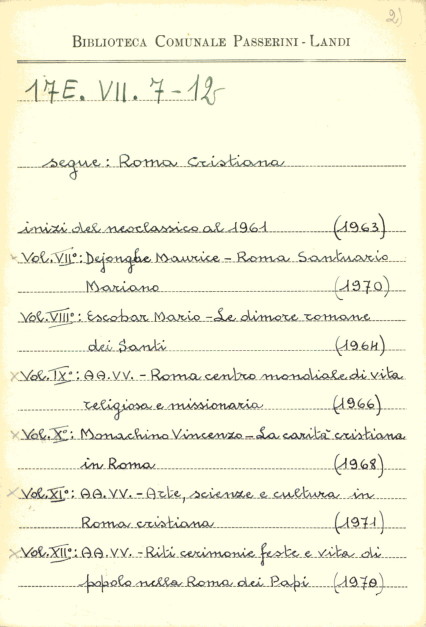 2)
BIBLIOTECA COMUNALE PASSERINI - LANDI
17E. VII. 7-12
segue: Roma Cristiana
inizi del neoclassico al 1961 (1963)
Vol. VII°: Dejonghe Maurice - Roma Santuario
Mariano (1970)
Vol. VIII°: Escobar Mario - Le dimore romane
dei Santi (1964)
x Vol. IX°: AA.VV. - Roma centro mondiale di vita
religiosa e missionaria (1966)
x Vol. X°: Monachino Vincenzo - La carità cristiana
in Roma (1968)
x Vol. XI°: AA.VV. - Arte, scienze e cultura in
Roma cristiana (1971)
x Vol. XII°: AA.VV. - Riti cerimonie feste e vita di
popolo nella Roma dei Papi (1970)